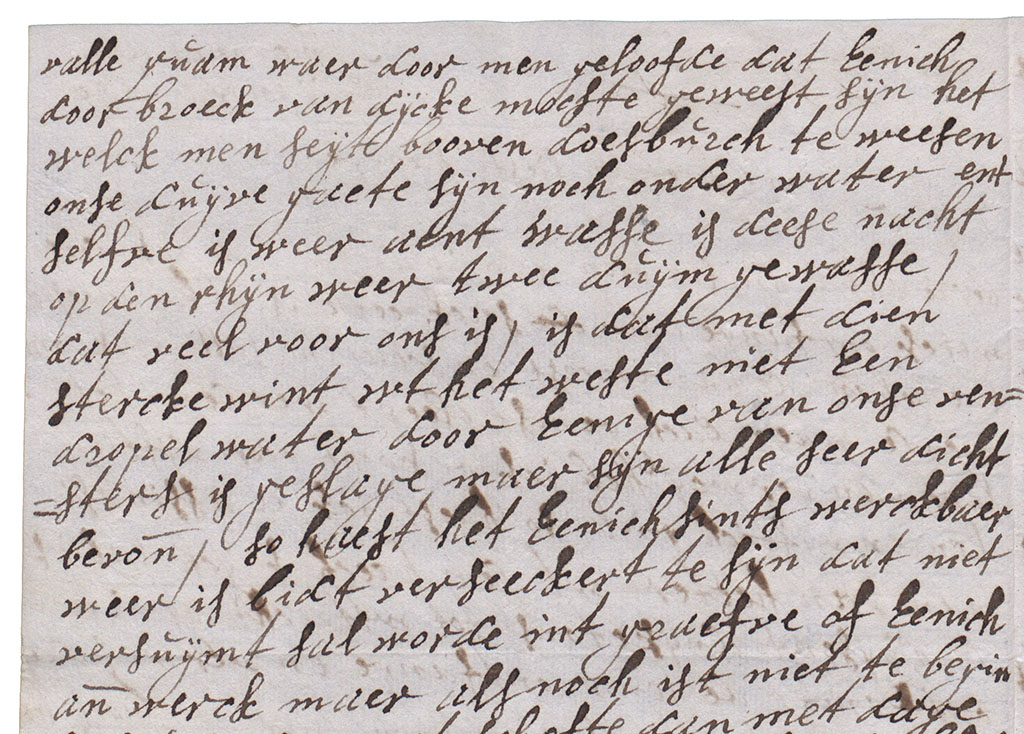 valle quam waer door men geloofde dat Eenich
door broeck van dijcke mochte geweest sijn het
welck men seyt booven doesburch te weesen
onse duijve gaete sijn noch onder water ent
selfve is weer aent wasse is deese nacht
op den rhijn weer twee duijm gewasse /
dat veel voor ons is / is dat met dien
stercke wint wt het weste niet Een
dropel water door Eenige van onse ven=
=sters is geslage maer sijn alle seer dicht
bevon̄ / so haest het Eenichsints werckbaer
weer is bidt verseeckert te sijn dat niet
versuijmt sal worde int graefve of Eenich
an̄ werck maer als noch ist niet te begin
dan met dage